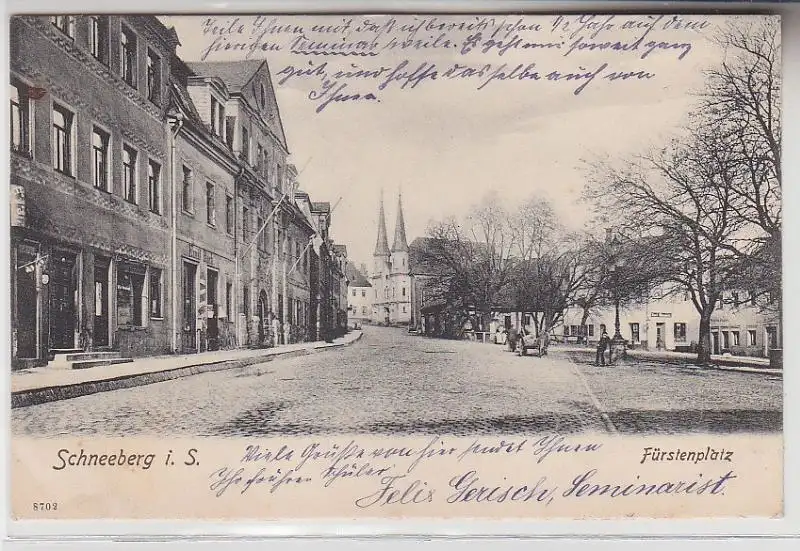 Teile Ihnen mit, daß ich bereits schon 1/2 Jahr auf dem
hiesigen Seminar weile. Es geht mir soweit ganz
gut, und hoffe dasselbe auch von
Ihnen.
Schneeberg i. S.
Fürstenplatz
Viele Grüße von hier sendet Ihnen
Ihr früherer Schüler
Felix Gerisch, Seminarist.
8702